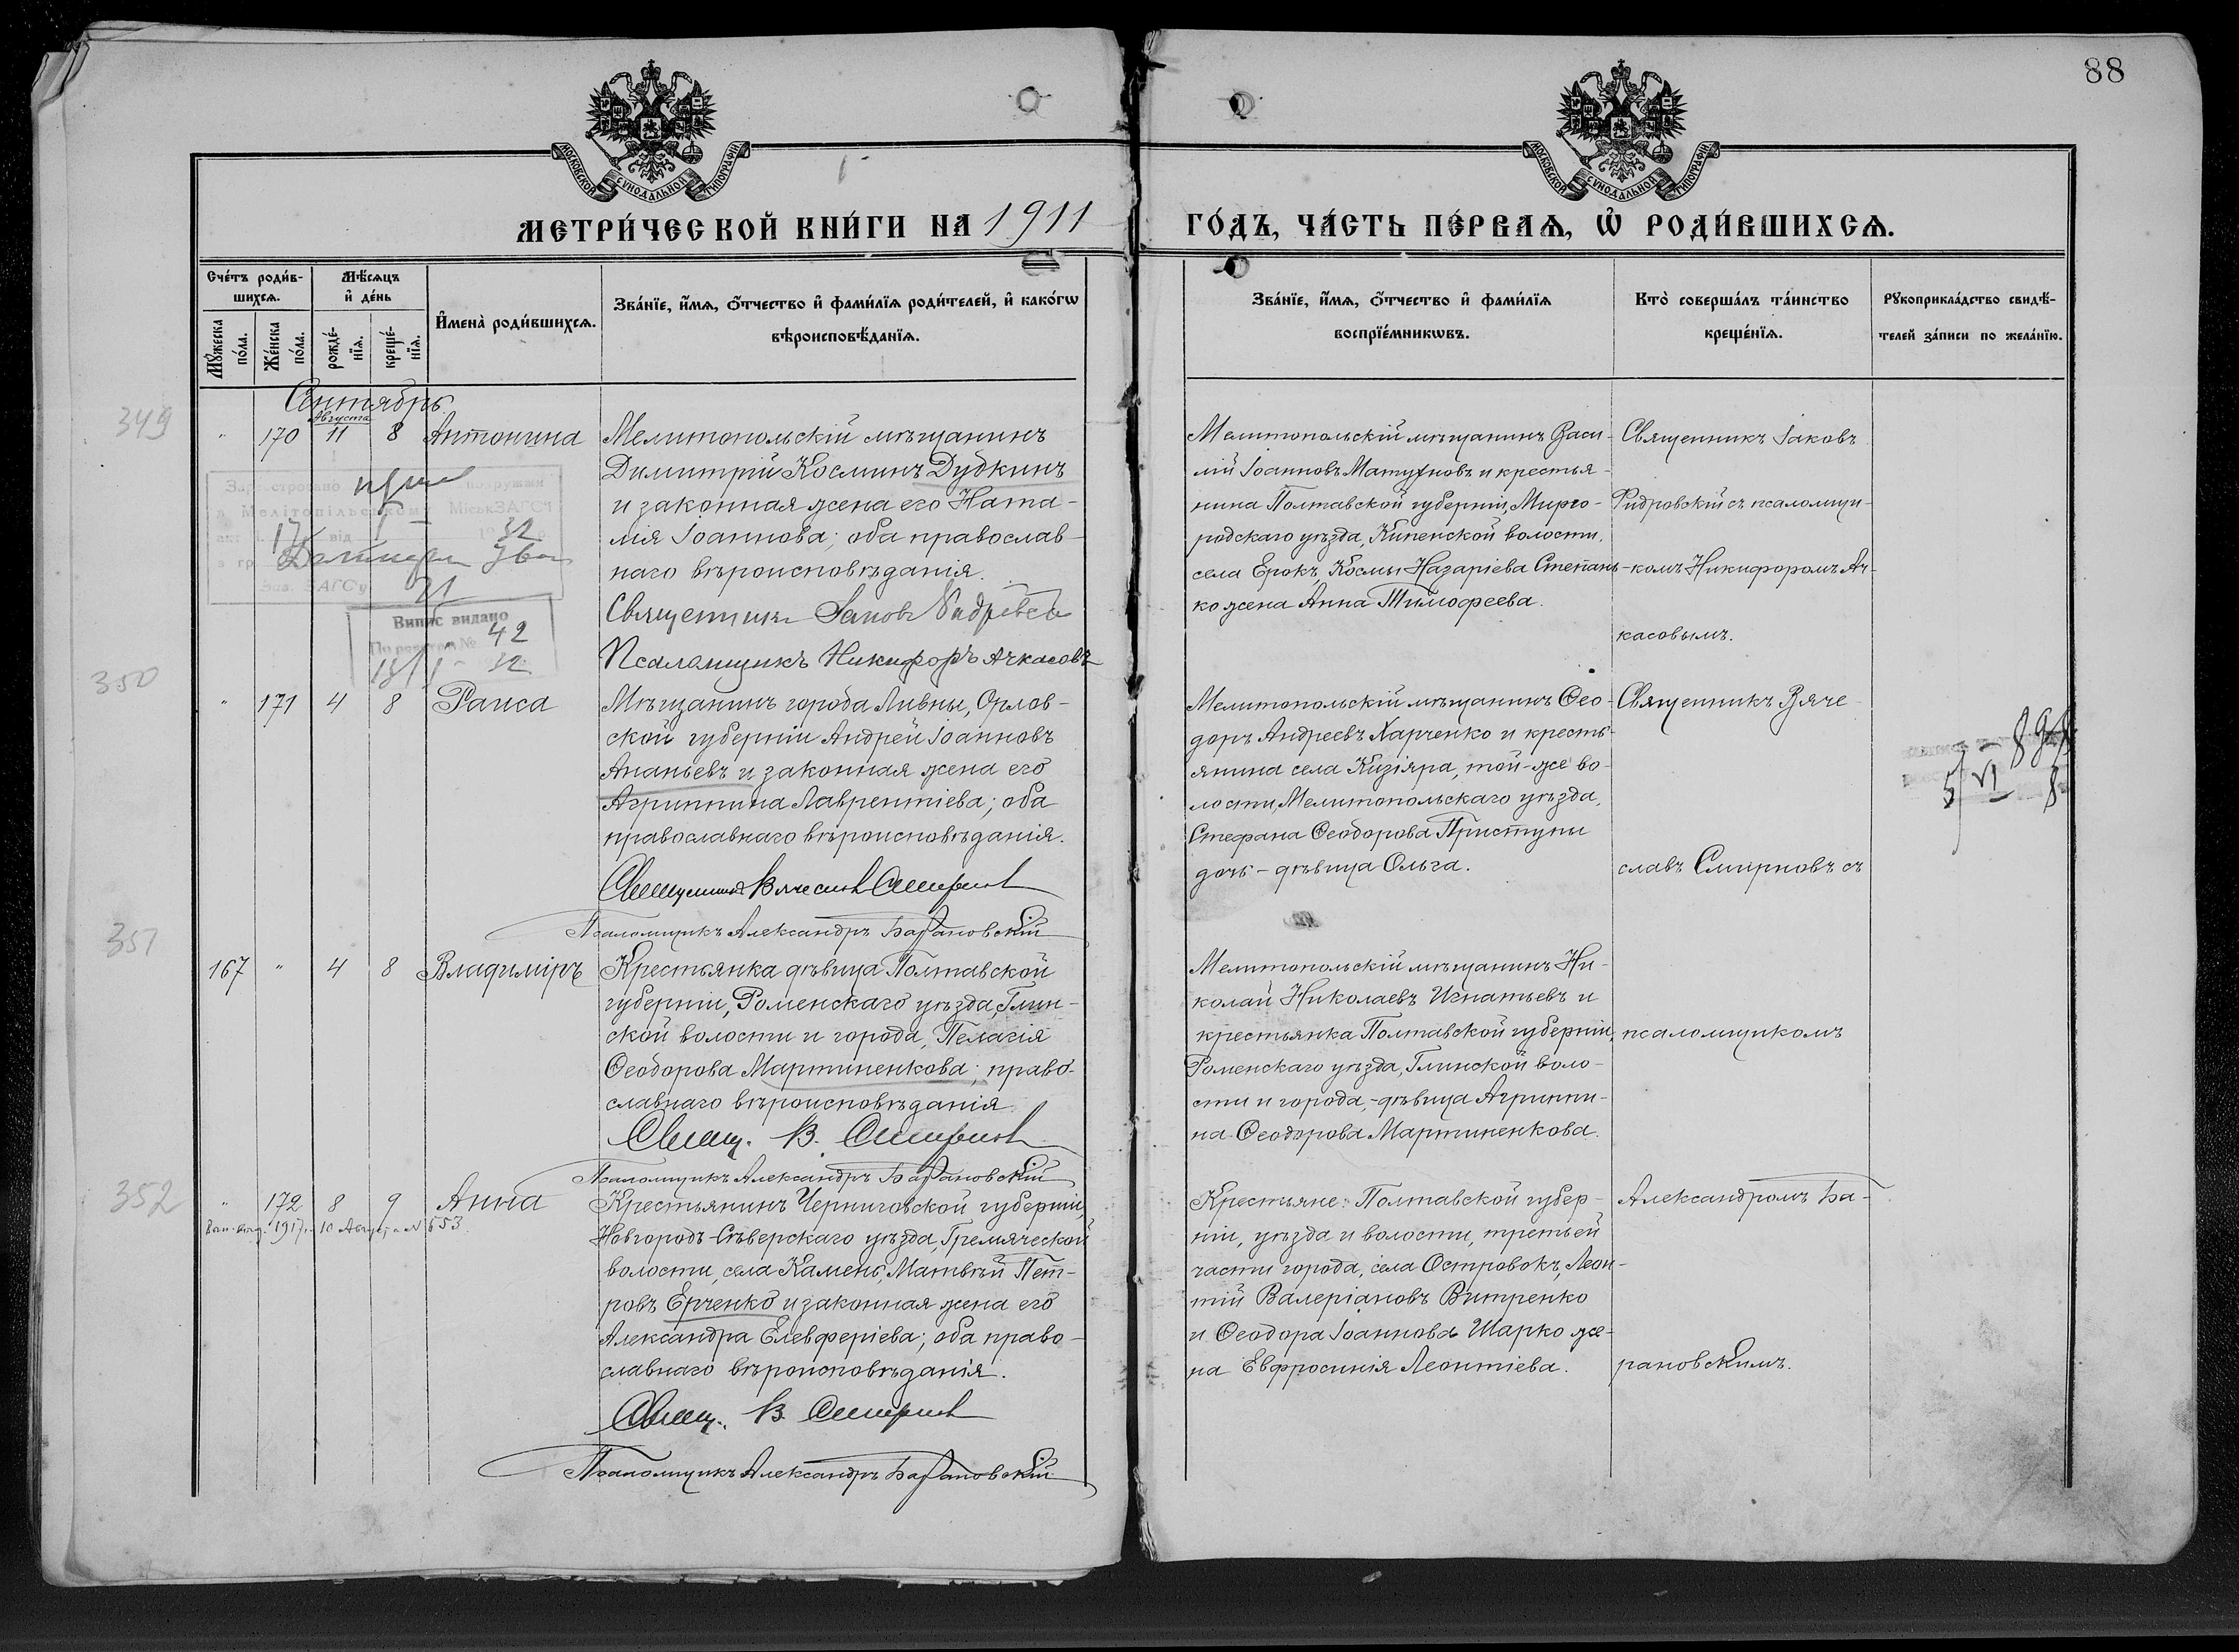 88
МОСКОВСКОЙ СѴНОДАЛЬНОЙ ТИПОГРАФІИ
МОСКОВСКОЙ СѴНОДАЛЬНОЙ ТИПОГРАФІИ
МЕТРИ́ЧЕСКОЙ КНИ́ГИ НА 1911
ГО́ДЪ, ЧА́СТЬ ПЕ́РВАѦ, Ѡ҆ РОДИ́ВШИХСѦ.
Сче́тъ роди́в-
шихсѧ.
Мѹ́жеска
по́ла.
Же́нска
по́ла.
Мѣ́сѧцъ
и҆ де́нь
рожде́-
нїѧ.
креще́-
нїѧ.
И҆мена̀ роди́вшихсѧ.
Зва́нїе, и҆́мѧ, ѻ҆́тчество и҆ фами́лїѧ роди́телей, и҆ како́гѡ
вѣроисповѣ́данїѧ.
Зва́нїе, и҆́мѧ, ѻ҆́тчество и҆ фами́лїѧ
воспрїе́мникѡвъ.
Кто̀ соверша́лъ та́инство
креще́нїѧ.
Рꙋкоприкла́дство свидѣ́-
телей за́писи по жела́нїю.
Сентябрь
349
" 170 Августа 11 8 Антонина
Мелитопольскій мѣщанинъ
Димитрій Косминъ Дудкинъ
и законная жена его Ната-
лія Іоаннова; оба православ-
наго вѣроисповѣданія.
Священникъ Іаковъ
Псаломщикъ Никифоръ Ачкасовъ
Мелитопольскій мѣщанинъ Васи-
лій Іоанновъ и крестья-
нина Полтавской губерніи, Мирго-
родскаго уѣзда, волости,
села Ерокъ, Космы Назаріева Степань-
ко жена Анна Тимофеева.
Священникъ Іаковъ
съ псаломщи-
комъ Никифоромъ Ач-
касовымъ.
МіськЗАГСі
17 від 1 32
Зав. ЗАГСу
Випис видано
По реестр № 42
13/I - 32
350
" 171 4 8 Раиса
Мѣщанинъ города Ливны, Орлов-
ской губерніи Андрей Іоанновъ
Ананьевъ и законная жена его
Агриппина Лаврентіева; оба
православнаго вѣроисповѣданія.
Священникъ Вячеславъ Смирновъ
Псаломщикъ Александръ Барановскій
Мелитопольскій мѣщанинъ Ѳео-
доръ Андреевъ Харченко и кресть-
янина села Кизіяра, той-же во-
лости, Мелитопольскаго уѣзда,
Стефана Ѳеодорова Приступы
дочь - дѣвица Ольга.
Священникъ Вяче-
славъ Смирновъ съ
351
167 " 4 8 Владиміръ
Крестьянка дѣвица Полтавской
губерніи, Роменскаго уѣзда, Глин-
ской волости и города, Пелагія
Ѳеодорова Мартиненкова; право-
славнаго вѣроисповѣданія.
Свящ. В. Смирновъ
Псаломщикъ Александръ Барановскій
Мелитопольскій мѣщанинъ Ни-
колай Николаевъ Игнатьевъ и
крестьянка Полтавской губерніи,
Роменскаго уѣзда, Глинской воло-
сти и города,-дѣвица Агриппи-
на Ѳеодорова Мартиненкова.
псаломщикомъ
352
" 172 8 9 Анна
1917 г. 10 Августа № 553
Крестьянинъ Черниговской губерніи,
Новгородъ-Сѣверскаго уѣзда, Гремяческой
волости, села Камень, Матвѣй Пет-
ровъ Ерченко и законная жена его
Александра Елевферіева; оба право-
славнаго вѣроисповѣданія.
Свящ. В. Смирновъ
Псаломщикъ Александръ Барановскій
Крестьяне: Полтавской губер-
ніи, уѣзда и волости, третьей
части города, села Островокъ, Леон-
тій Валеріановъ Витренко
и Ѳеодора Іоаннова Шарко же-
на Евфросинія Леонтіева.
Александромъ Ба-
рановскимъ.